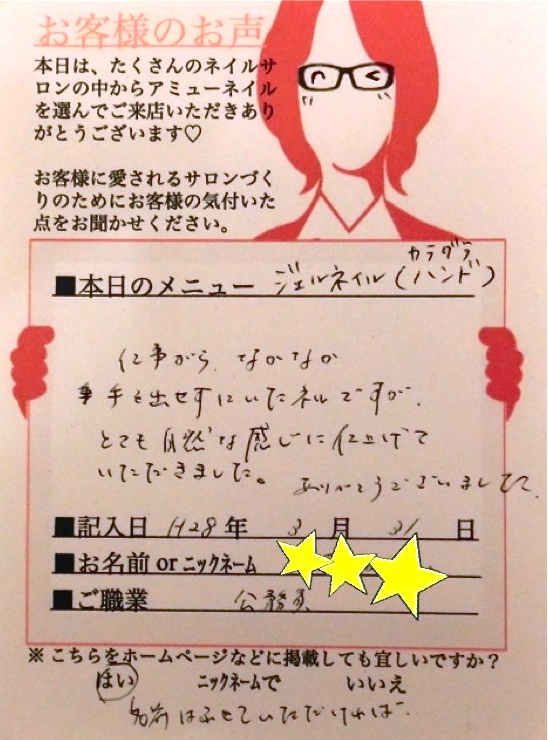 お客様のお声
本日は、たくさんのネイルサ
ロンの中からアミューネイル
を選んでご来店いただきあり
がとうございます♡
お客様に愛されるサロンづく
りのためにお客様の気付いた
点をお聞かせください。
カラダラ
■本日のメニュー ジェルネイル(ハンド)
仕事がら、なかなか
手も出せずにいたネルですが、
とても自然な感じに仕上げて
いただきました。
ありがとうございました。
■記入日 H28年 3月 31日
■お名前 or ニックネーム
■ご職業 公務員
※ こちらをホームページなどに掲載しても宜しいですか?
はい ニックネームで いいえ
名前はふせていただければ